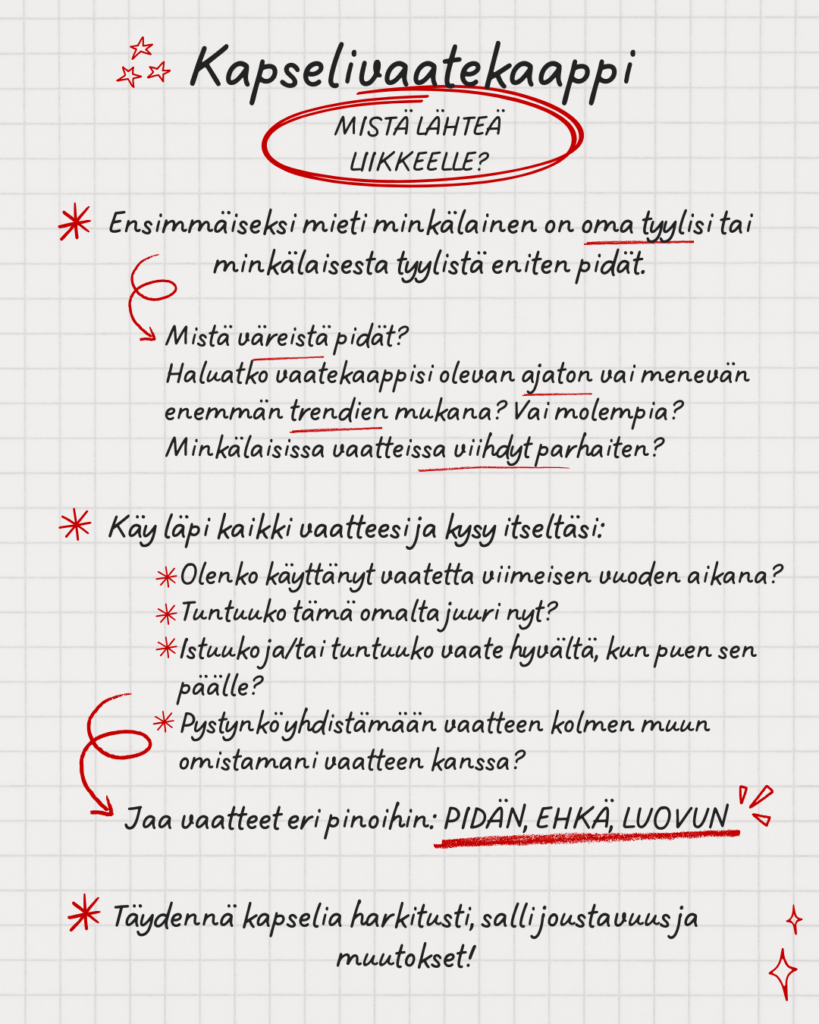 Kapselivaatekaappi
MISTÄ LÄHTEÄ
LIIKKEELLE?
Ensimmäiseksi mieti minkälainen on oma tyylisi tai
minkälaisesta tyylistä eniten pidät.
Mistä väreistä pidät?
Haluatko vaatekaappisi olevan ajaton vai menevän
enemmän trendien mukana? Vai molempia?
Minkälaisissa vaatteissa viihdyt parhaiten?
Käy läpi kaikki vaatteesi ja kysy itseltäsi:
Olenko käyttänyt vaatetta viimeisen vuoden aikana?
Tuntuuko tämä omalta juuri nyt?
Istuuko ja/tai tuntuuko vaate hyvältä, kun puen sen
päälle?
Pystynkö yhdistämään vaatteen kolmen muun
omistamani vaatteen kanssa?
Jaa vaatteet eri pinoihin: PIDÄN, EHKÄ, LUOVUN
Täydennä kapselia harkitusti, salli joustavuus ja
muutokset!